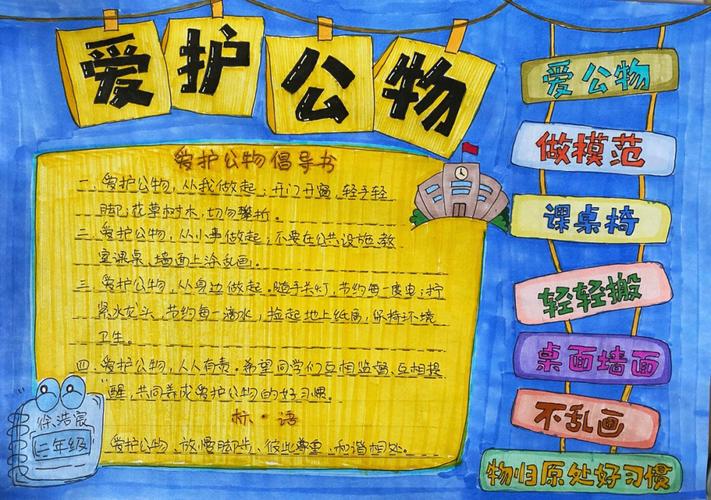 爱护公物
爱护公物倡导书
一、爱护公物，从我做起；开门开窗，轻手轻
脚；花草树木，切勿攀折。
二、爱护公物，从小事做起；不要在公共设施、教
室课桌、墙面上涂乱画。
三、爱护公物，从身边做起。随手关灯，节约每一度电；拧
紧水龙头，节约每一滴水，捡起地上纸屑，保持环境
卫生。
四、爱护公物，人人有责。希望同学们互相监督、互相提
醒，共同养成爱护公物的好习惯。
标·语
爱护公物、放慢脚步、彼此尊重、和谐相处。
徐浩宸
二年级
爱公物
做模范
课桌椅
轻轻搬
桌面墙面
不乱画
物归原处好习惯